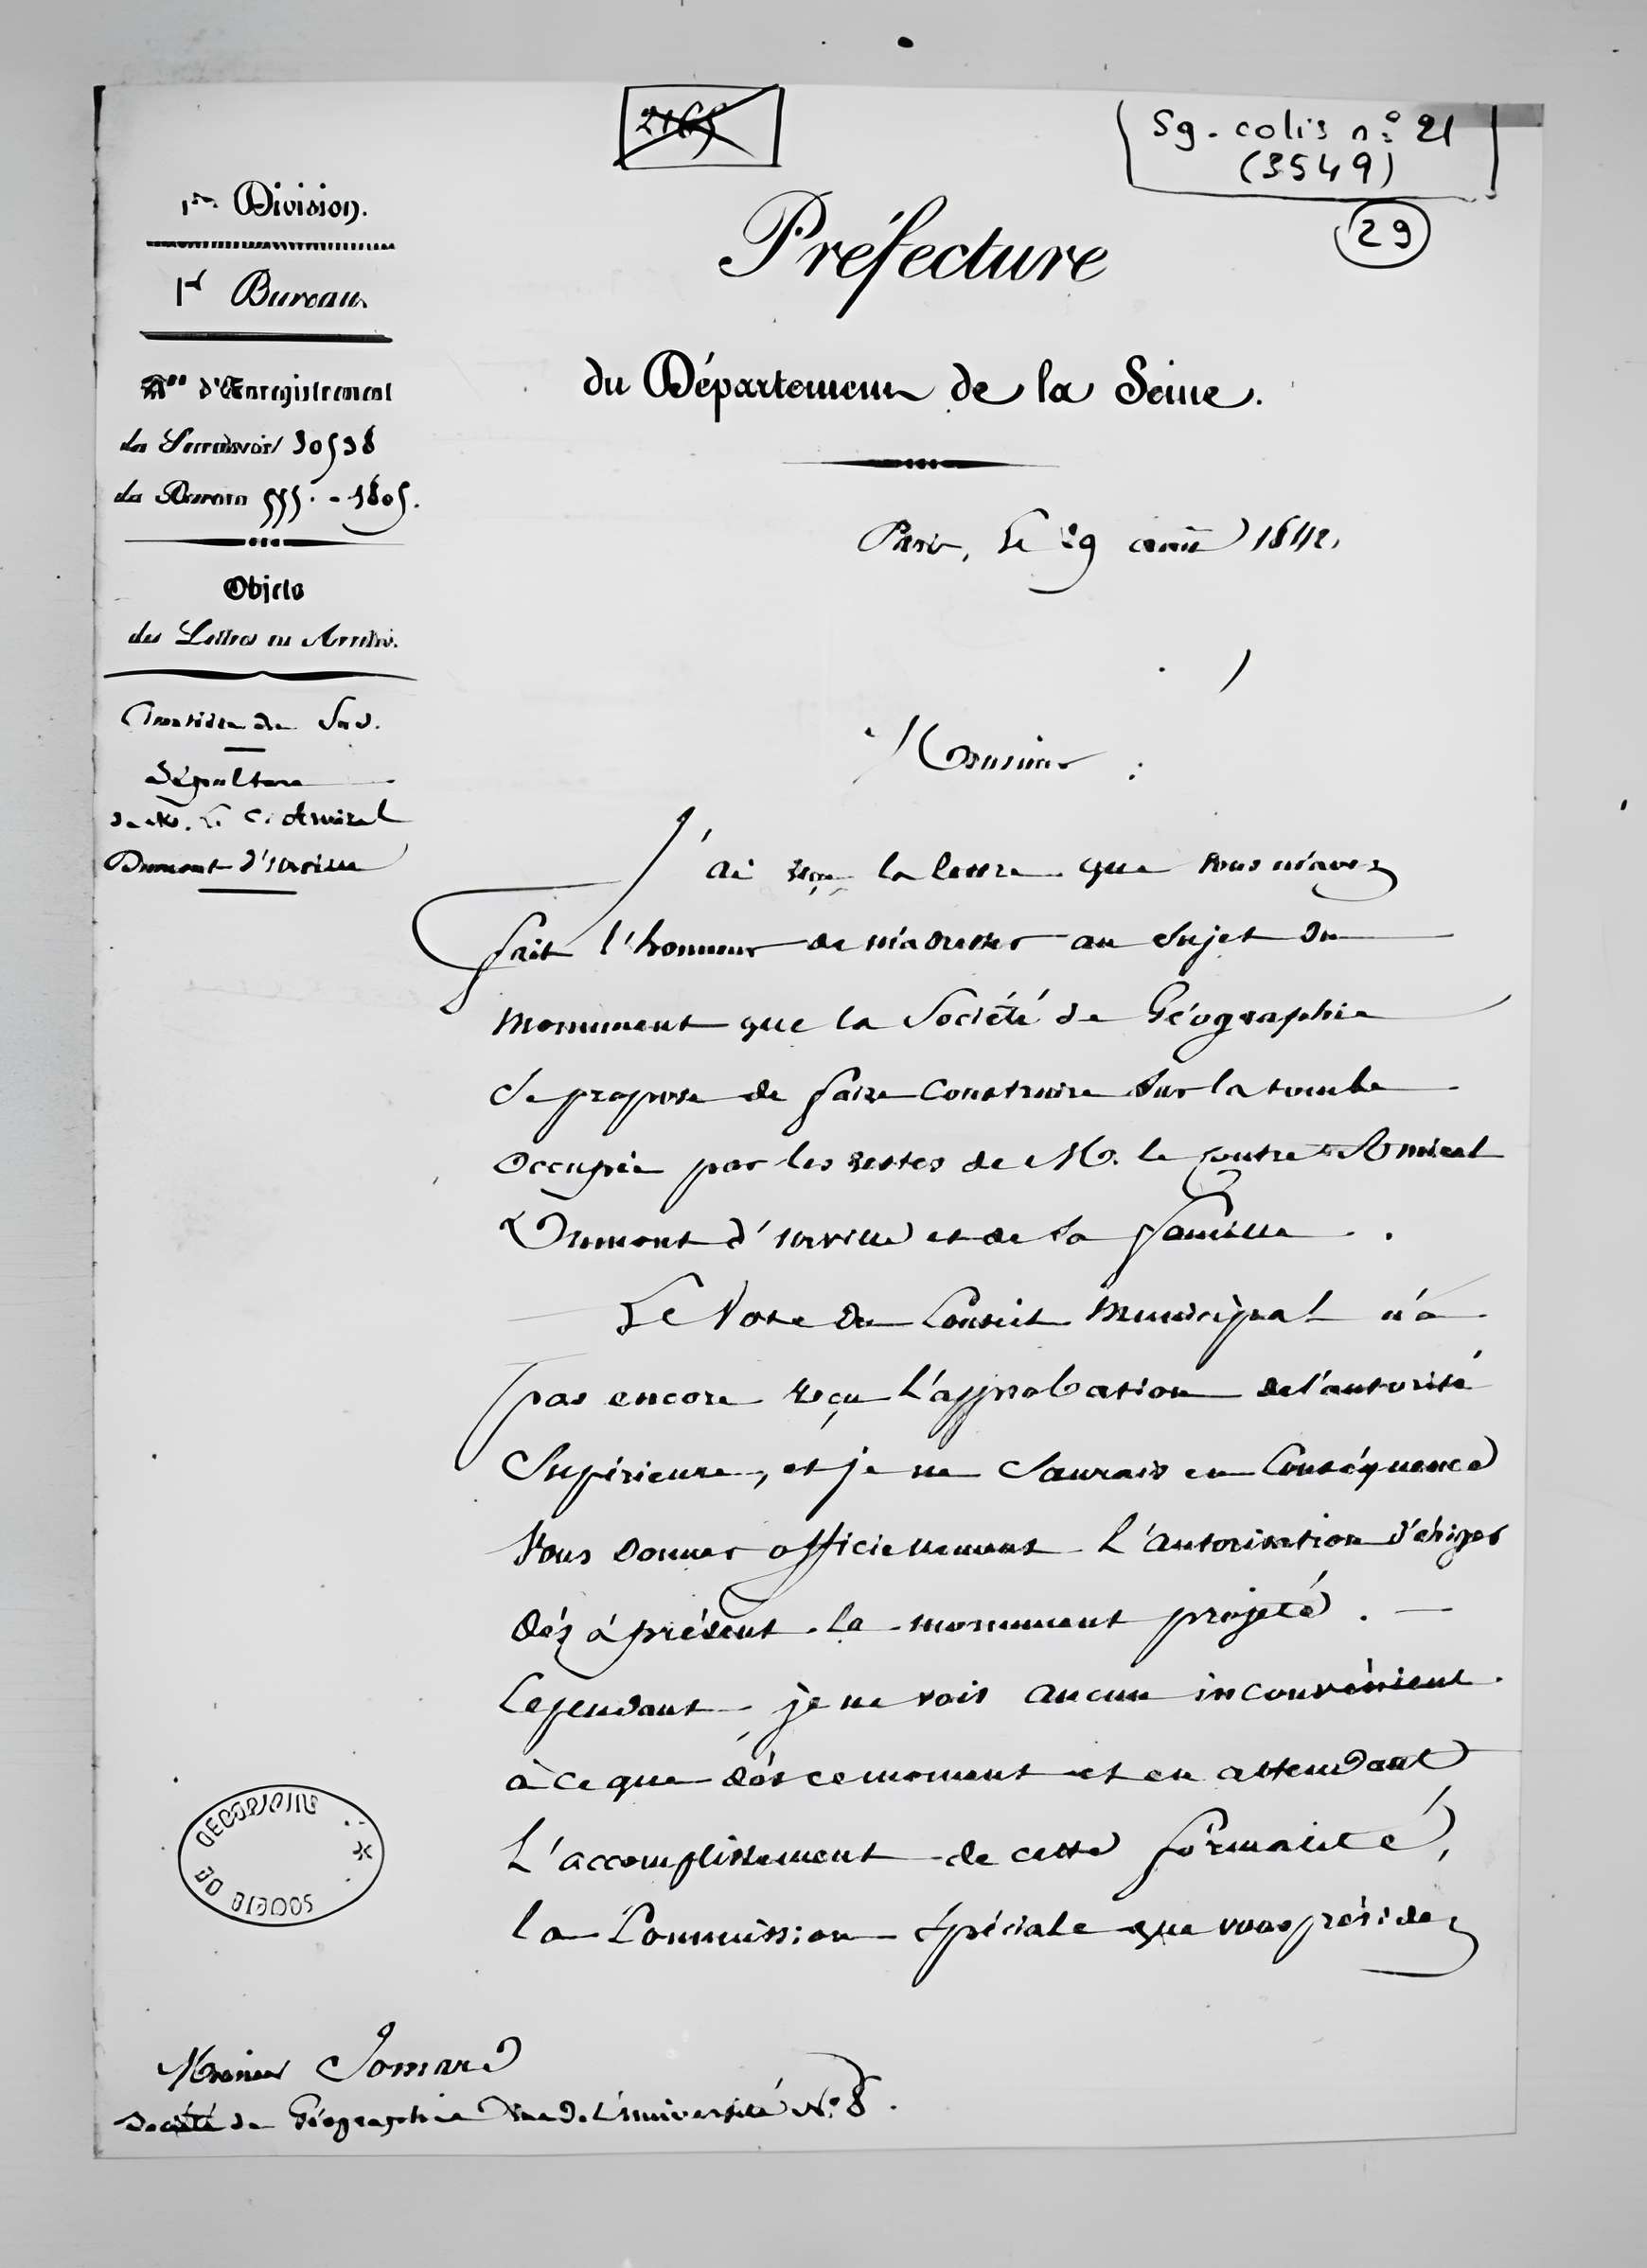 2165
Sg. colis n° 21
(3549)
29
1re Division.
1er Bureau
Nos d'Enregistrement
du Secrétariat 30538
du Bureau 555. - 1805.
Objets
des Lettres ou Arrêtés.
Cimetière du Sud.
Sépulture
de M. le C. Amiral
Dumont d'Urville
Préfecture
du Département de la Seine.
Paris, le 29 août 1842.
Monsieur :
J'ai reçu la lettre que vous m'avez
fait l'honneur de m'adresser au sujet du
monument que la Société de Géographie
se propose de faire construire sur la tombe
occupée par les restes de M. le Contre Amiral
Dumont d'Urville et de sa famille.
Le Vote du Conseil Municipal n'a
pas encore reçu l'approbation de l'autorité
Supérieure, et je ne saurais en Conséquence
Vous donner officiellement l'autorisation d'ériger
dès à présent le monument projeté. —
Cependant je ne vois aucun inconvénient
à ce que dès ce moment et en attendant
l'accomplissement de cette formalité,
la Commission Spéciale que vous présidez
SOCIETE DE GEOGRAPHIE
Monsieur Jomard
Société de Géographie rue de l'université N° 8.